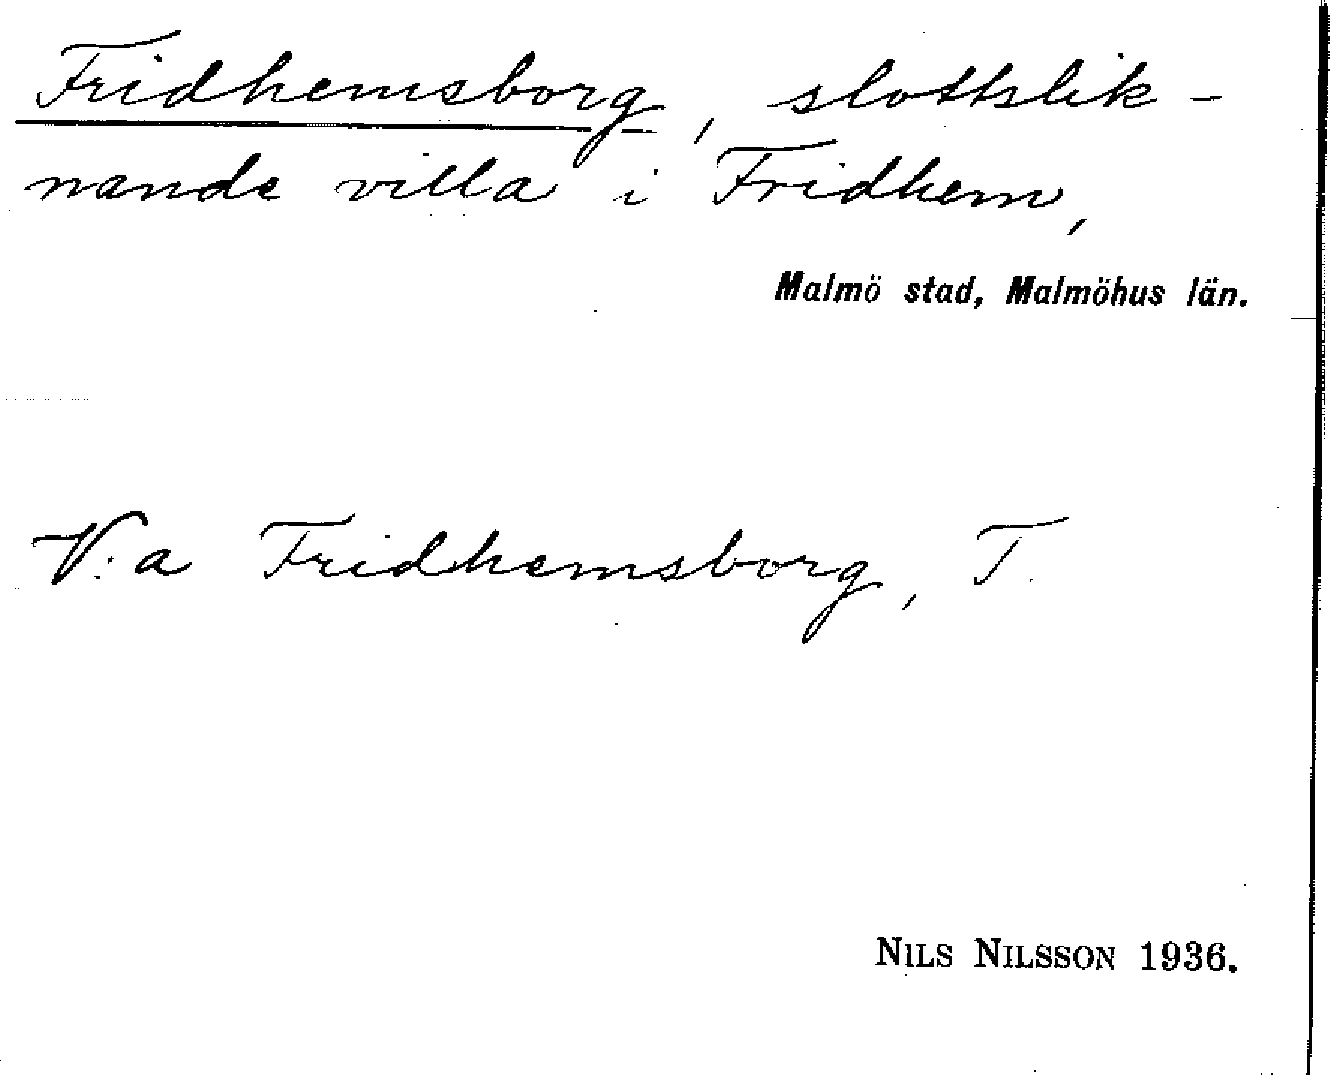 Fridhemsborg, slottslik-
nande villa i Fridhem,
Malmö stad, Malmöhus län.
V:a Fridhemsborg, T.
NILS NILSSON 1936.